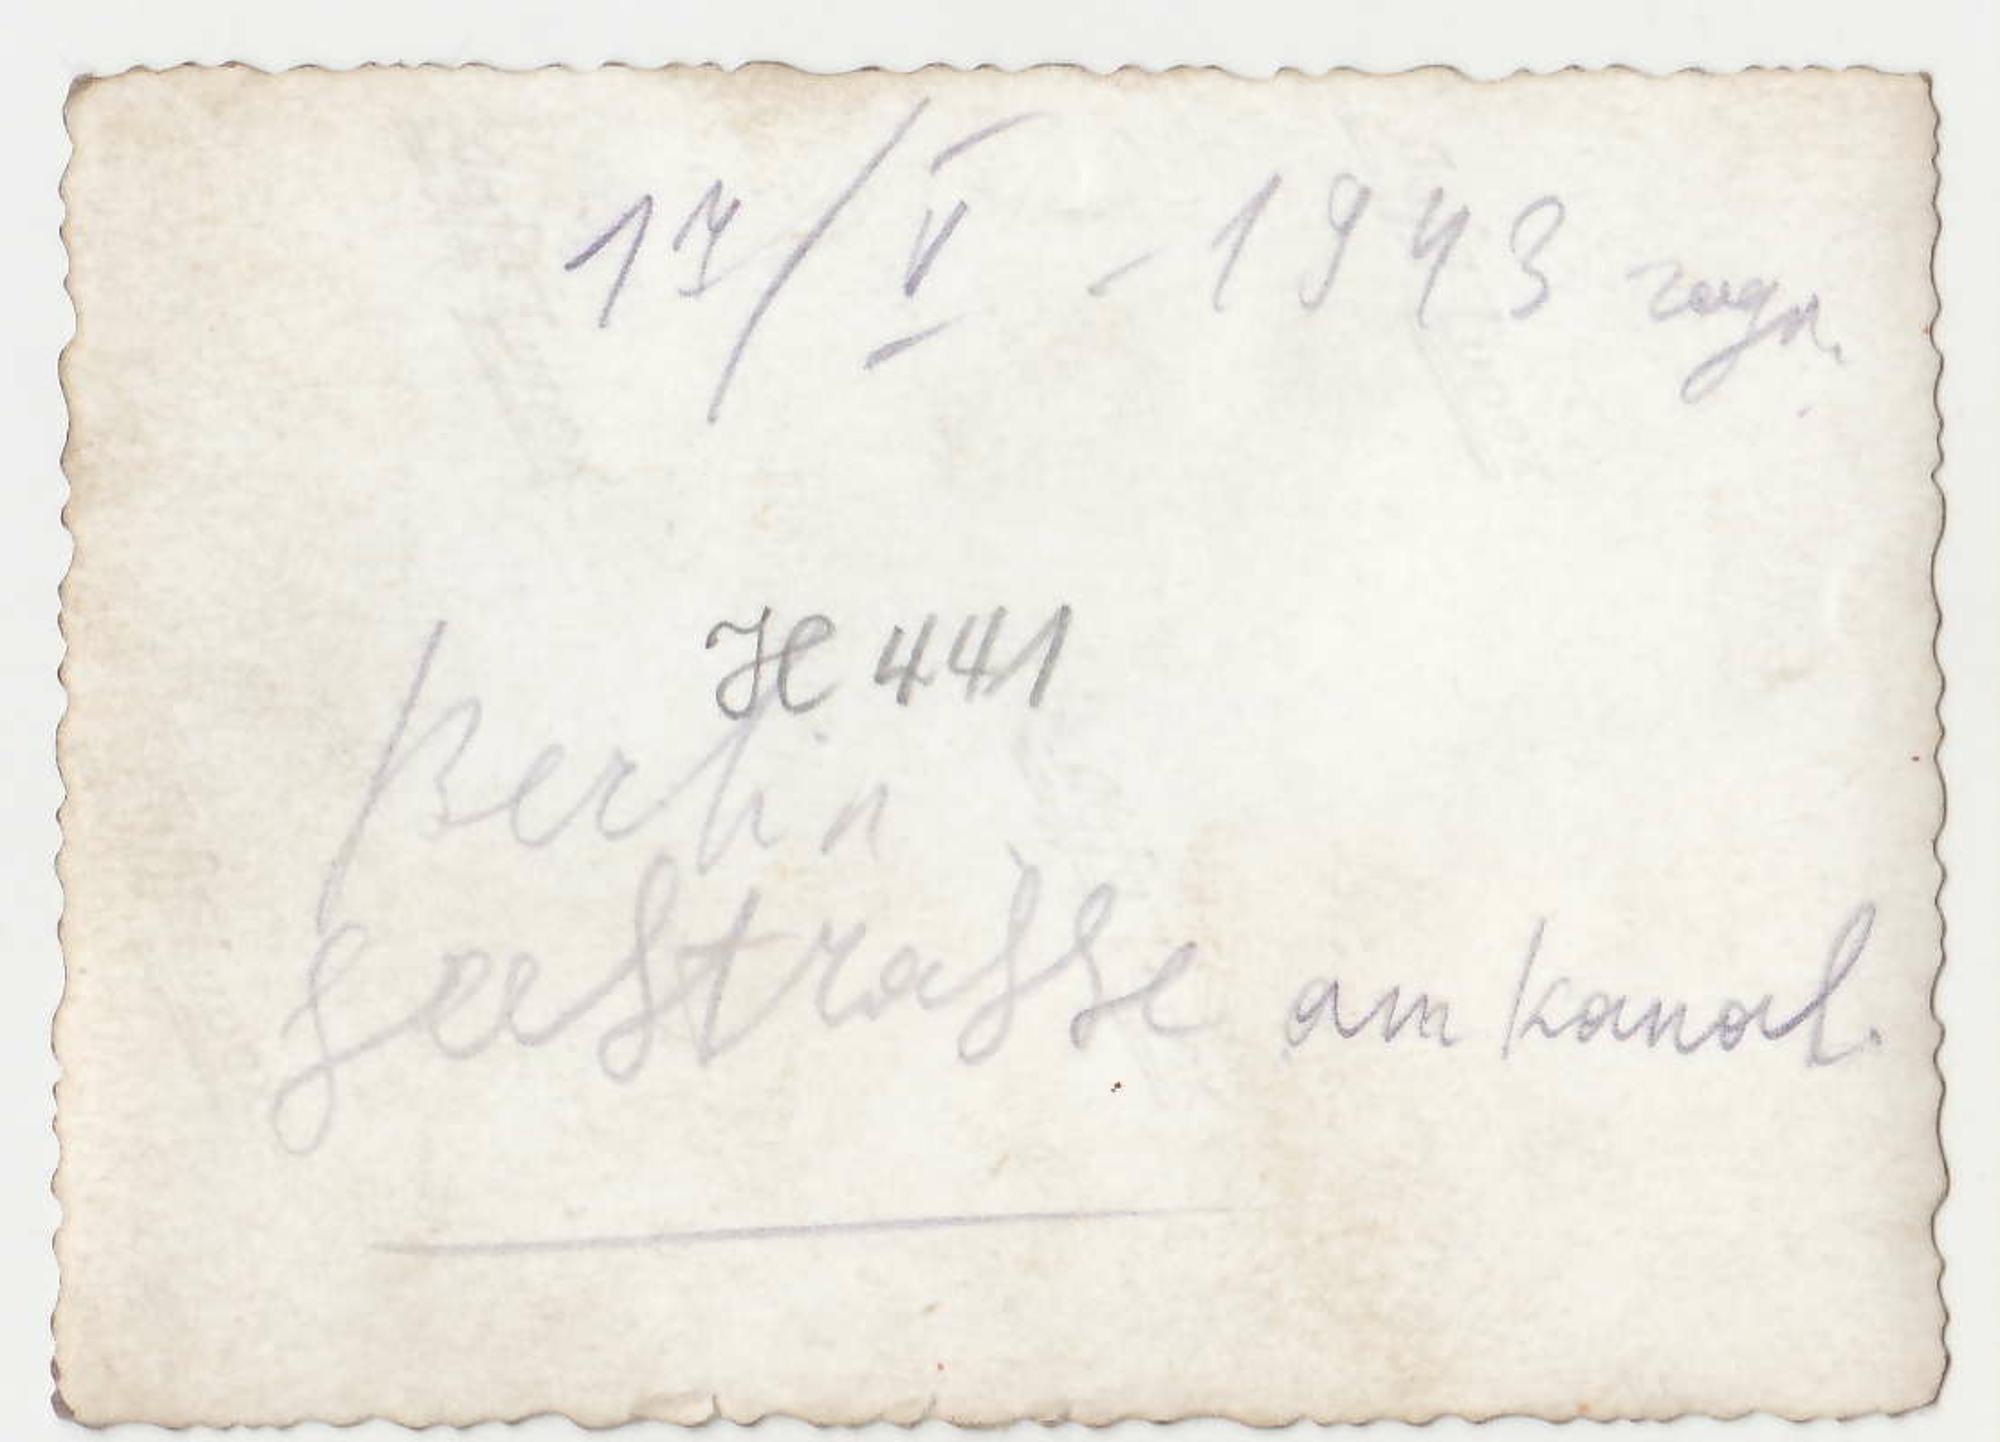 17/V - 1943 года.
H 441
Berlin
Seestrasse am Kanal.